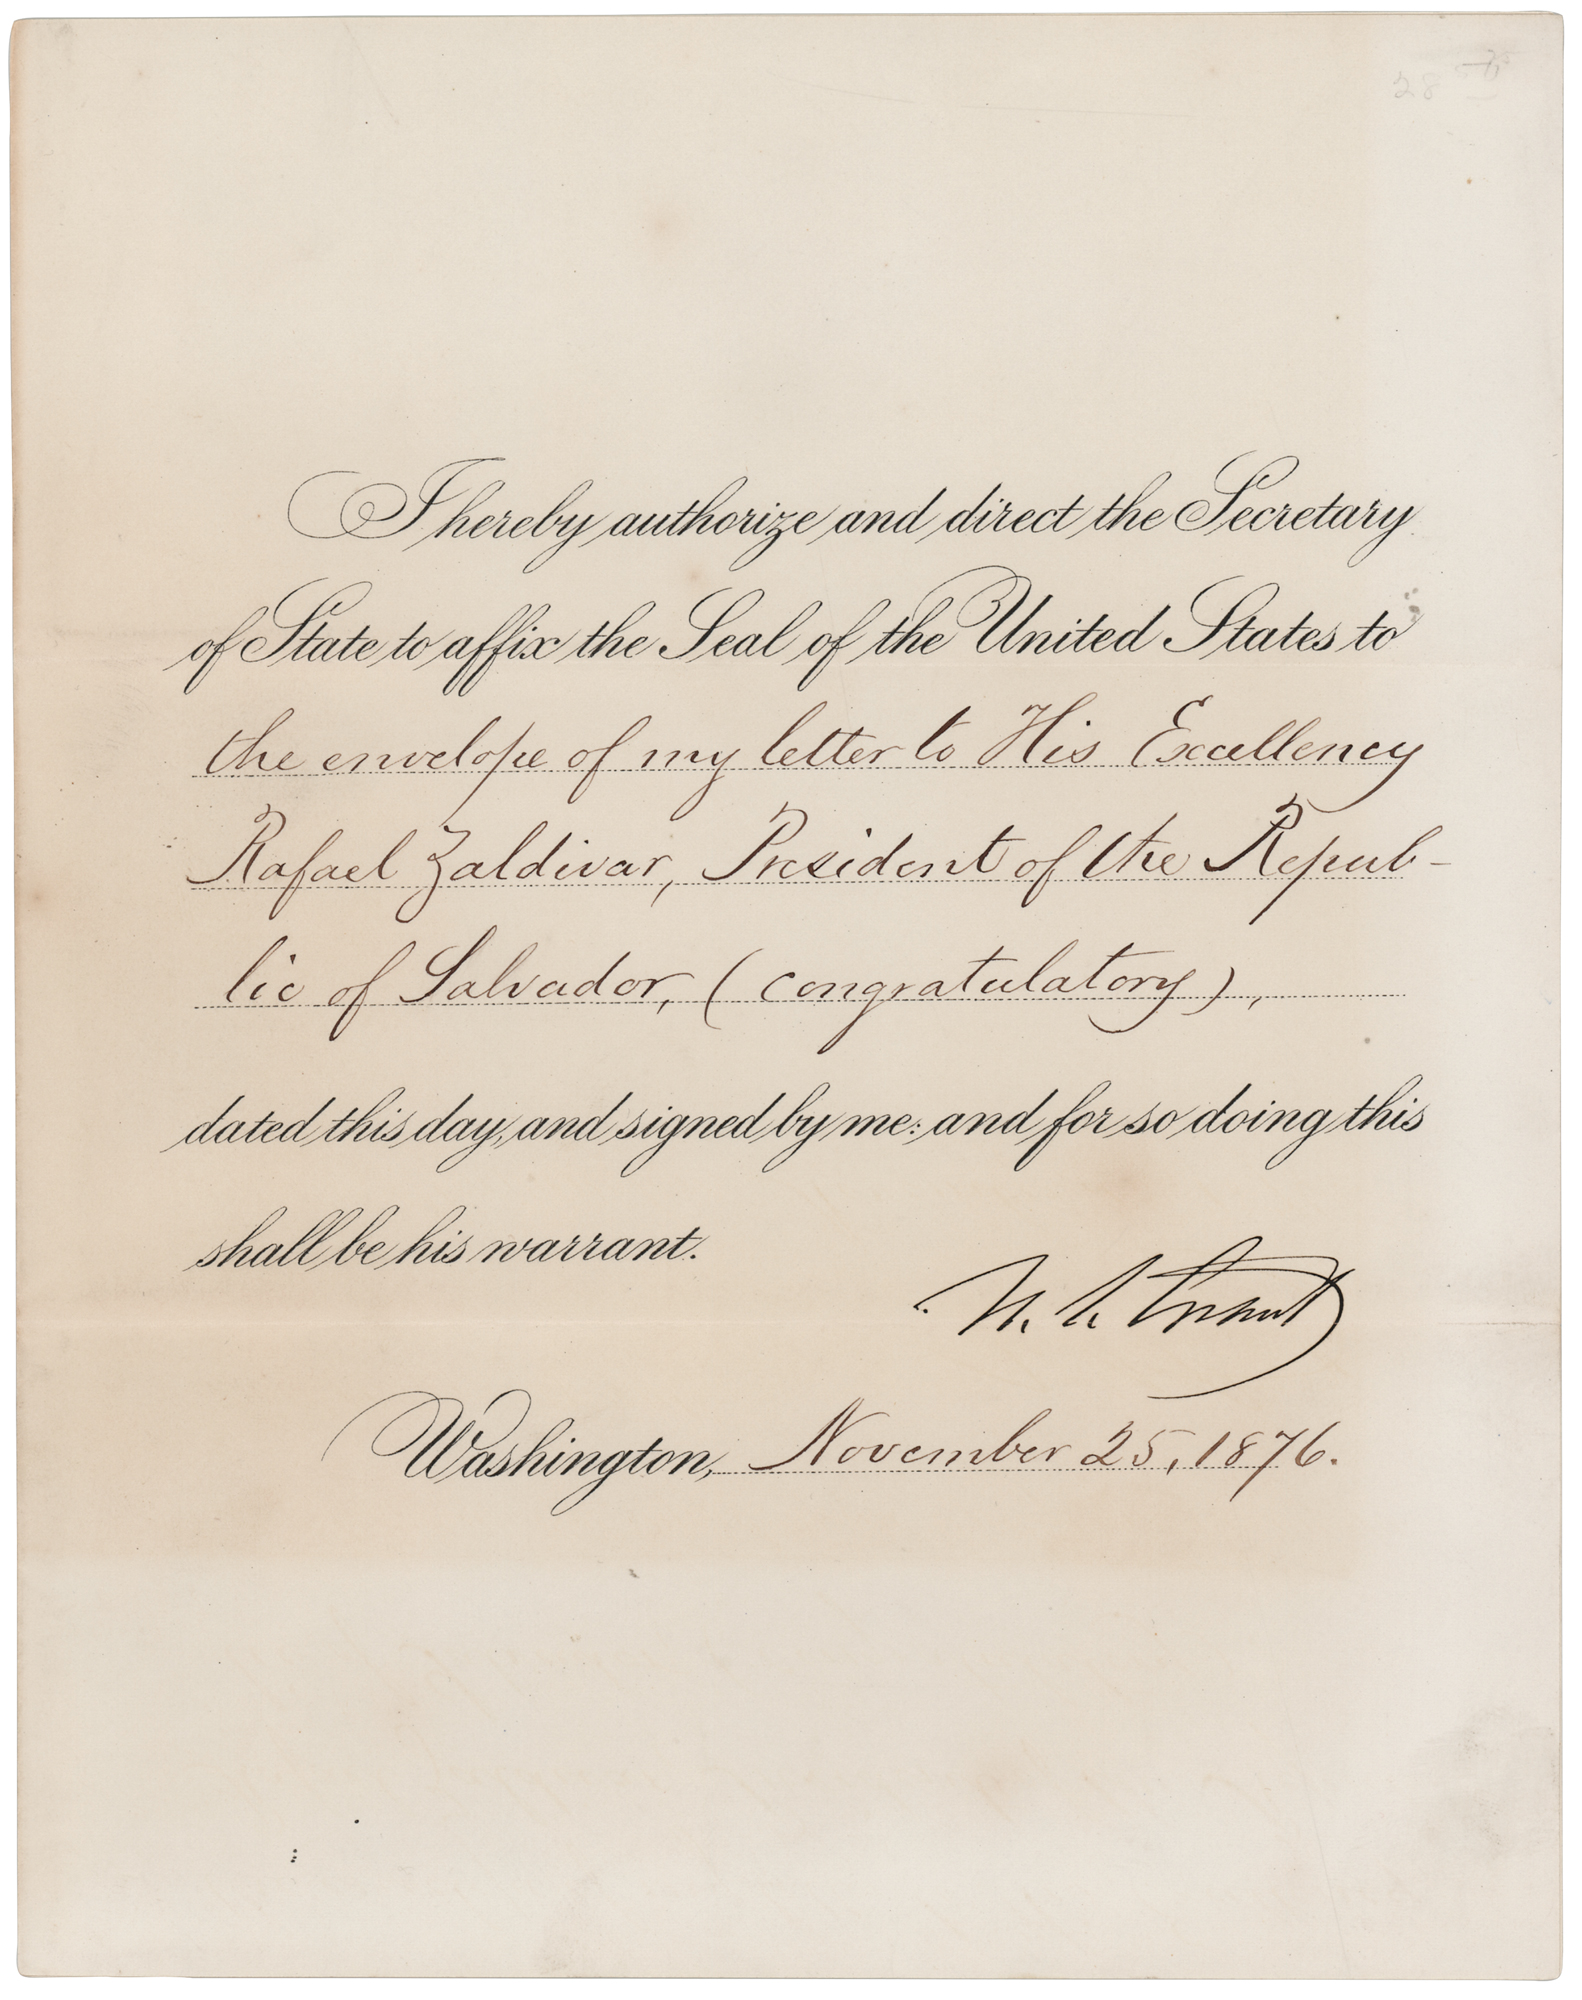 28
I hereby authorize and direct the Secretary
of State to affix the Seal of the United States to
the envelope of my letter to His Excellency
Rafael Zaldivar, President of the Repub-
lic of Salvador, (congratulatory),
dated this day, and signed by me: and for so doing this
shall be his warrant.
U. S. Grant
Washington, November 25, 1876.